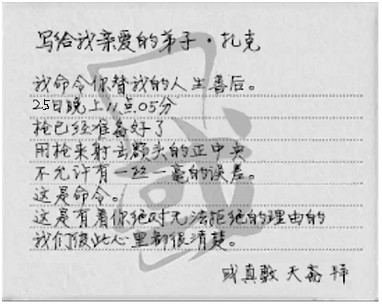 写给我亲爱的弟子·扎克
我命令你替我的人生善后。
25日晚上11点05分
枪已经准备好了
用枪来射击额头的正中央
不允许有一丝一毫的误差。
这是命令。
这是有着你绝对无法拒绝的理由的
我们彼此心里都很清楚。
或真敷 天斋